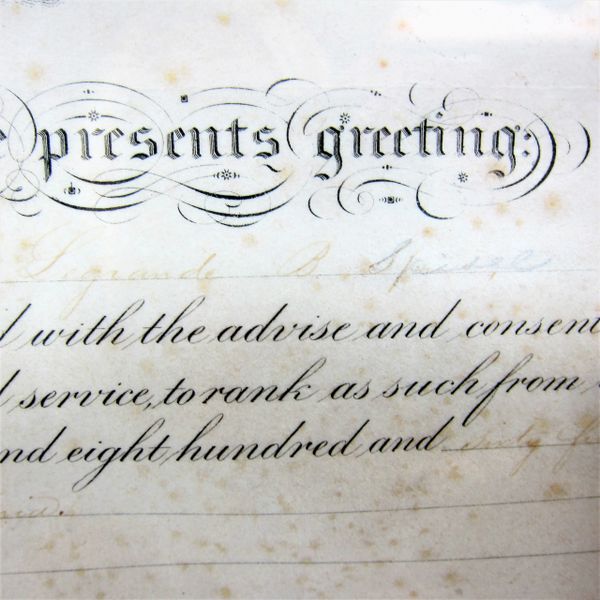 presents greeting:
Legrande B.
with the advise and consent
service, to rank as such from
nd eight hundred and sixty